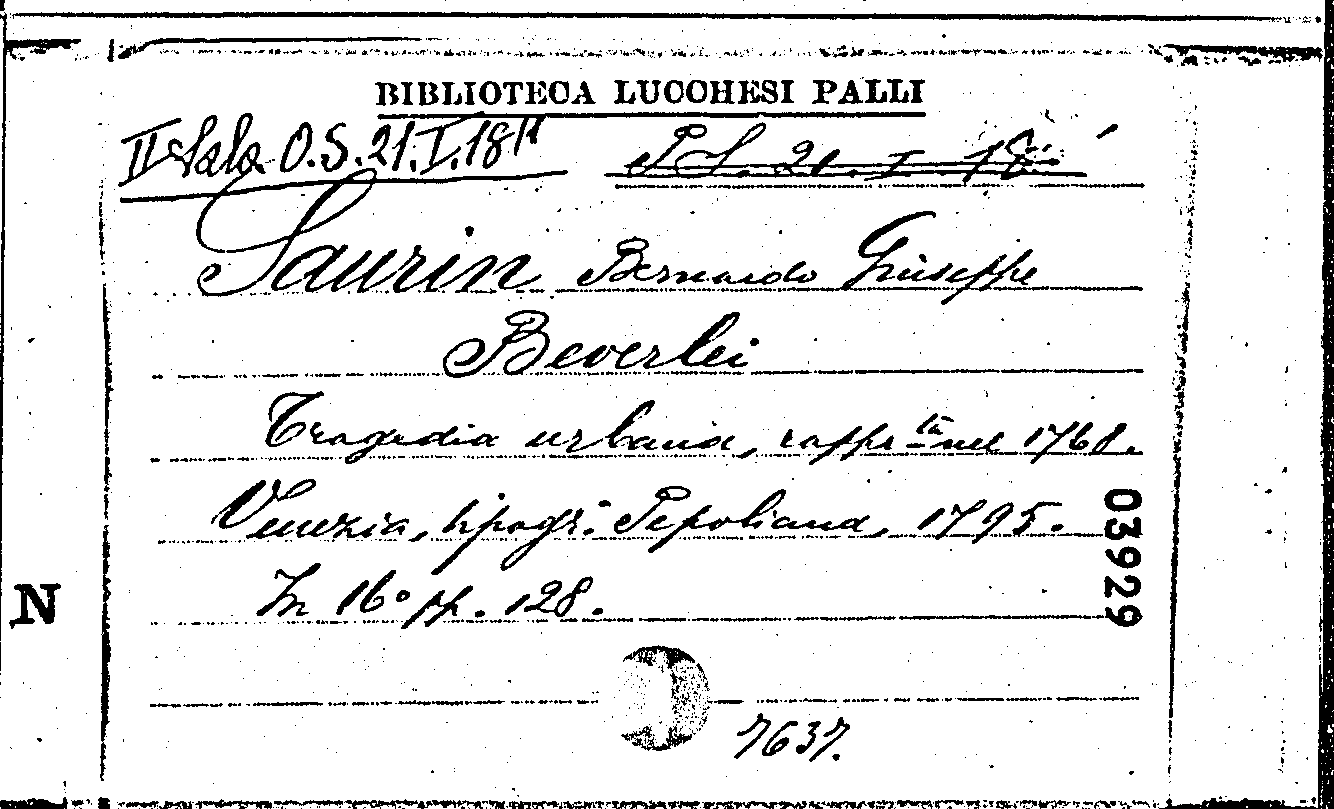 BIBLIOTECA LUCCHESI PALLI
II Sala O.S. 21. I. 18¹¹
P S. 21. I. 18
Saurin Bernardo Giuseppe
Beverlei
Tragedia urbana, rapprta nel 1768.
Venezia, tipogr. Pepoliana, 1795.
In 16° pp. 128.
03929
N
7637.